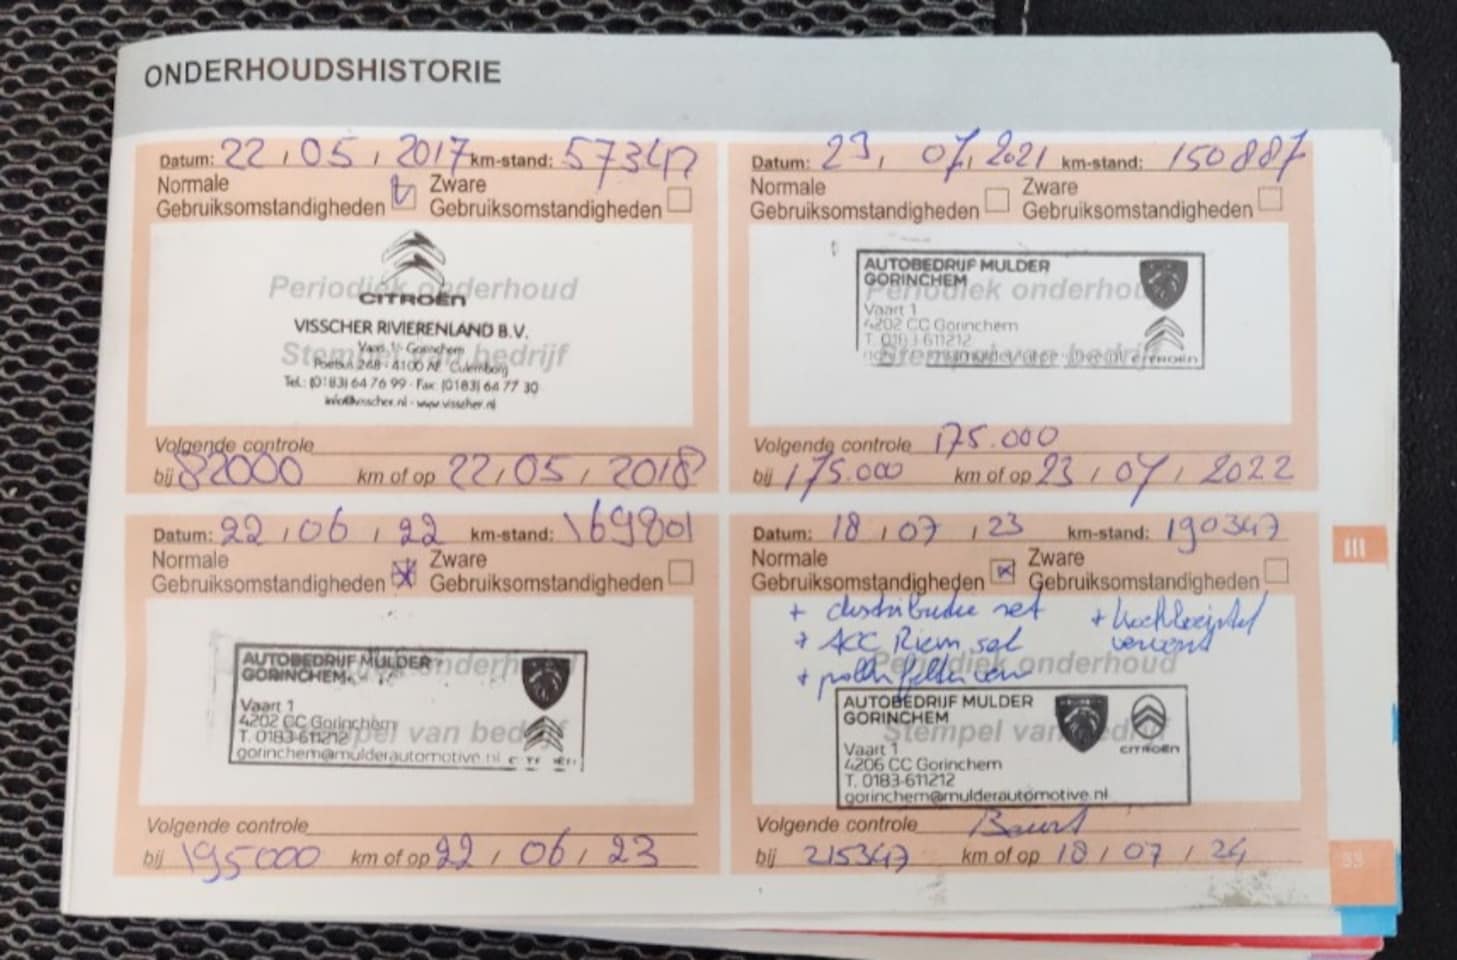 ONDERHOUDSHISTORIE
Datum: 22 / 05 / 2017 km-stand: 57347
Normale Gebruiksomstandigheden Zware Gebruiksomstandigheden
Periodiek onderhoud
CITROËN
VISSCHER RIVIERENLAND B.V.
Stempel van bedrijf
Vaart 1 - Gorinchem
Postbus 248 - 4100 AE Culemborg
Tel.: (0183) 64 76 99 - Fax: (0183) 64 77 30
info@visscher.nl - www.visscher.nl
Volgende controle
bij 82000 km of op 22 / 05 / 2018
Datum: 23 / 07 / 2021 km-stand: 150887
Normale Gebruiksomstandigheden Zware Gebruiksomstandigheden
AUTOBEDRIJF MULDER
GORINCHEM
Periodiek onderhoud
Vaart 1
4202 CC Gorinchem
T. 0183-611212
Stempel van bedrijf
CITROËN
Volgende controle 175.000
bij 175.000 km of op 23 / 07 / 2022
Datum: 22 / 06 / 22 km-stand: 169801
Normale Gebruiksomstandigheden Zware Gebruiksomstandigheden
AUTOBEDRIJF MULDER
GORINCHEM
onderhoud
Vaart 1
4202 CC Gorinchem
Stempel van bedrijf
T. 0183-611212
gorinchem@mulderautomotive.nl
Volgende controle
bij 195000 km of op 22 / 06 / 23
Datum: 18 / 07 / 23 km-stand: 190347
Normale Gebruiksomstandigheden Zware Gebruiksomstandigheden
+ distributie set
+ ACC Riem set
+ pollenfilter
+ koelvloeistof ververst
Periodiek onderhoud
AUTOBEDRIJF MULDER
GORINCHEM
Stempel van bedrijf
CITROËN
Vaart 1
4206 CC Gorinchem
T. 0183-611212
gorinchem@mulderautomotive.nl
Volgende controle Beurt
bij 215347 km of op 18 / 07 / 24
III
33